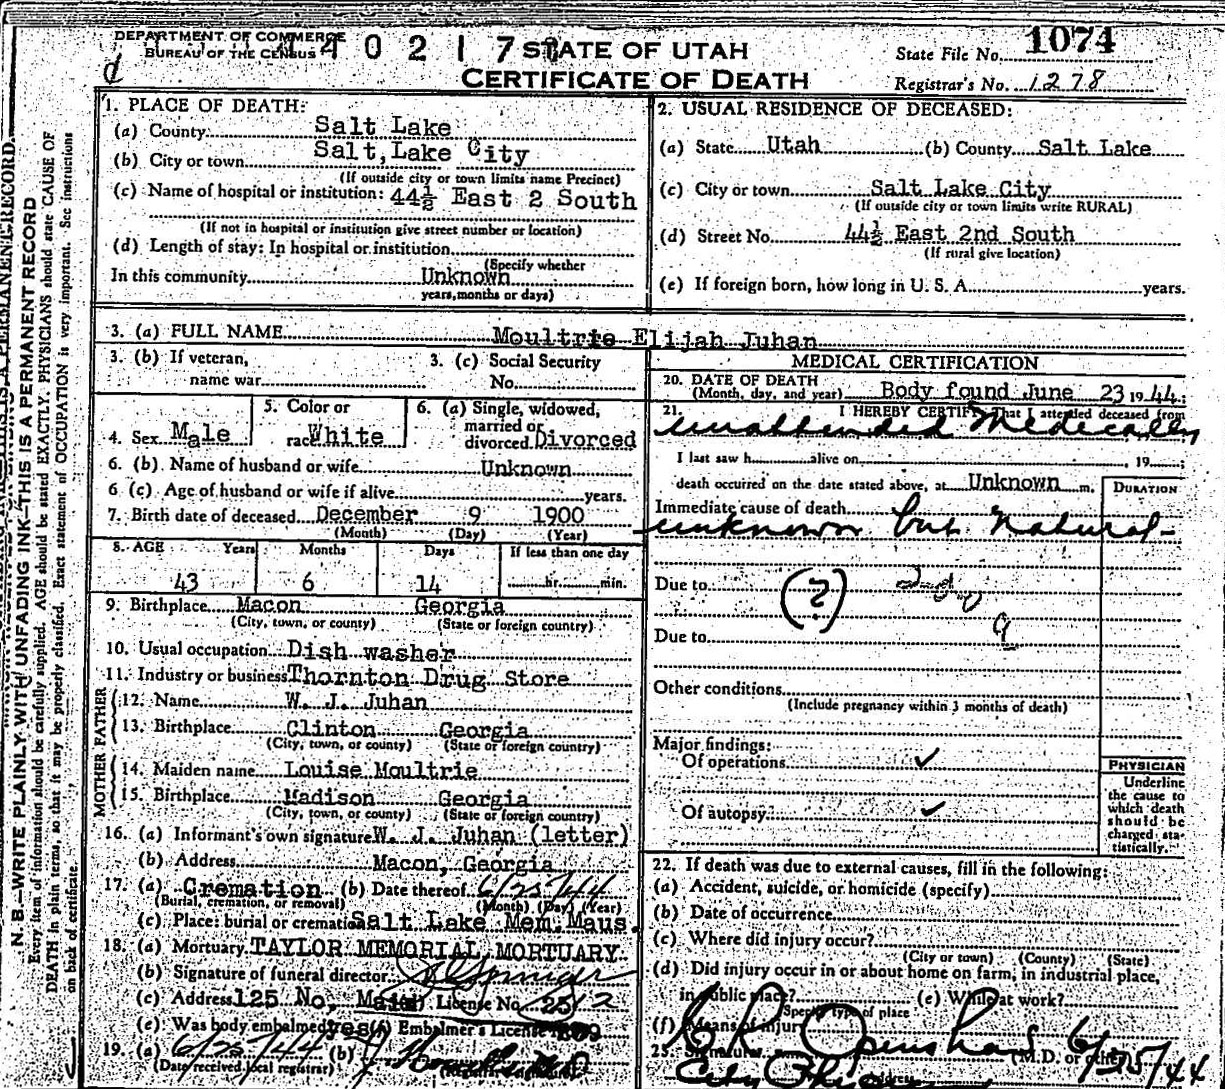 DEPARTMENT OF COMMERCE
BUREAU OF THE CENSUS
4 0 2 1 7
STATE OF UTAH
CERTIFICATE OF DEATH
State File No. 1074
Registrar's No. 1278
N. B.—WRITE PLAINLY WITH UNFADING INK—THIS IS A PERMANENT RECORD
Every item of information should be carefully supplied. AGE should be stated EXACTLY. PHYSICIANS should state CAUSE OF
DEATH in plain terms, so that it may be properly classified. Exact statement of OCCUPATION is very important. See instructions
on back of certificate.
1. PLACE OF DEATH:
(a) County Salt Lake
(b) City or town Salt, Lake City
(If outside city or town limits name Precinct)
(c) Name of hospital or institution: 44½ East 2 South
(If not in hospital or institution give street number or location)
(d) Length of stay: In hospital or institution
(Specify whether
In this community Unknown
years, months or days)
2. USUAL RESIDENCE OF DECEASED:
(a) State Utah (b) County Salt Lake
(c) City or town Salt Lake City
(If outside city or town limits write RURAL)
(d) Street No. 44½ East 2nd South
(If rural give location)
(e) If foreign born, how long in U. S. A. years.
3. (a) FULL NAME Moultrie Elijah Juhan
3. (b) If veteran,
name war
3. (c) Social Security
No.
4. Sex Male
5. Color or
race White
6. (a) Single, widowed,
married or
divorced. Divorced
6. (b). Name of husband or wife Unknown
6 (c) Age of husband or wife if alive years.
7. Birth date of deceased December 9 1900
(Month) (Day) (Year)
8. AGE Years Months Days If less than one day
43 6 14 hr. min.
9. Birthplace Macon Georgia
(City, town, or county) (State or foreign country)
10. Usual occupation Dish washer
11. Industry or business Thornton Drug Store
FATHER
12. Name W. J. Juhan
13. Birthplace Clinton Georgia
(City, town, or county) (State or foreign country)
MOTHER
14. Maiden name Louise Moultrie
15. Birthplace Madison Georgia
(City, town, or county) (State or foreign country)
16. (a) Informant's own signature W. J. Juhan (letter)
(b) Address Macon, Georgia
17. (a) Cremation (b) Date thereof 6/25/44
(Burial, cremation, or removal) (Month) (Day) (Year)
(c) Place: burial or cremation Salt Lake Mem. Maus.
18. (a) Mortuary TAYLOR MEMORIAL MORTUARY
(b) Signature of funeral director
(c) Address 125 No. Main License No.
(e) Was body embalmed yes (f) Embalmer's License
19. (a) 6/25/44 (b)
(Date received local registrar)
MEDICAL CERTIFICATION
20. DATE OF DEATH
(Month, day, and year) Body found June 23 1944
21. I HEREBY CERTIFY That I attended deceased from
unattended Medically
I last saw h alive on , 19 ;
death occurred on the date stated above, at Unknown m.
DURATION
Immediate cause of death
unknown but Natural-
Due to (?)
Due to
Other conditions
(Include pregnancy within 3 months of death)
Major findings:
Of operations ✓
Of autopsy ✓
PHYSICIAN
Underline
the cause to
which death
should be
charged sta-
tistically.
22. If death was due to external causes, fill in the following:
(a) Accident, suicide, or homicide (specify)
(b) Date of occurrence
(c) Where did injury occur?
(City or town) (County) (State)
(d) Did injury occur in or about home on farm, in industrial place,
in public place? (e) While at work?
(Specify type of place
(f) Means of injury
Signature M.D. or other 6/25/44
City